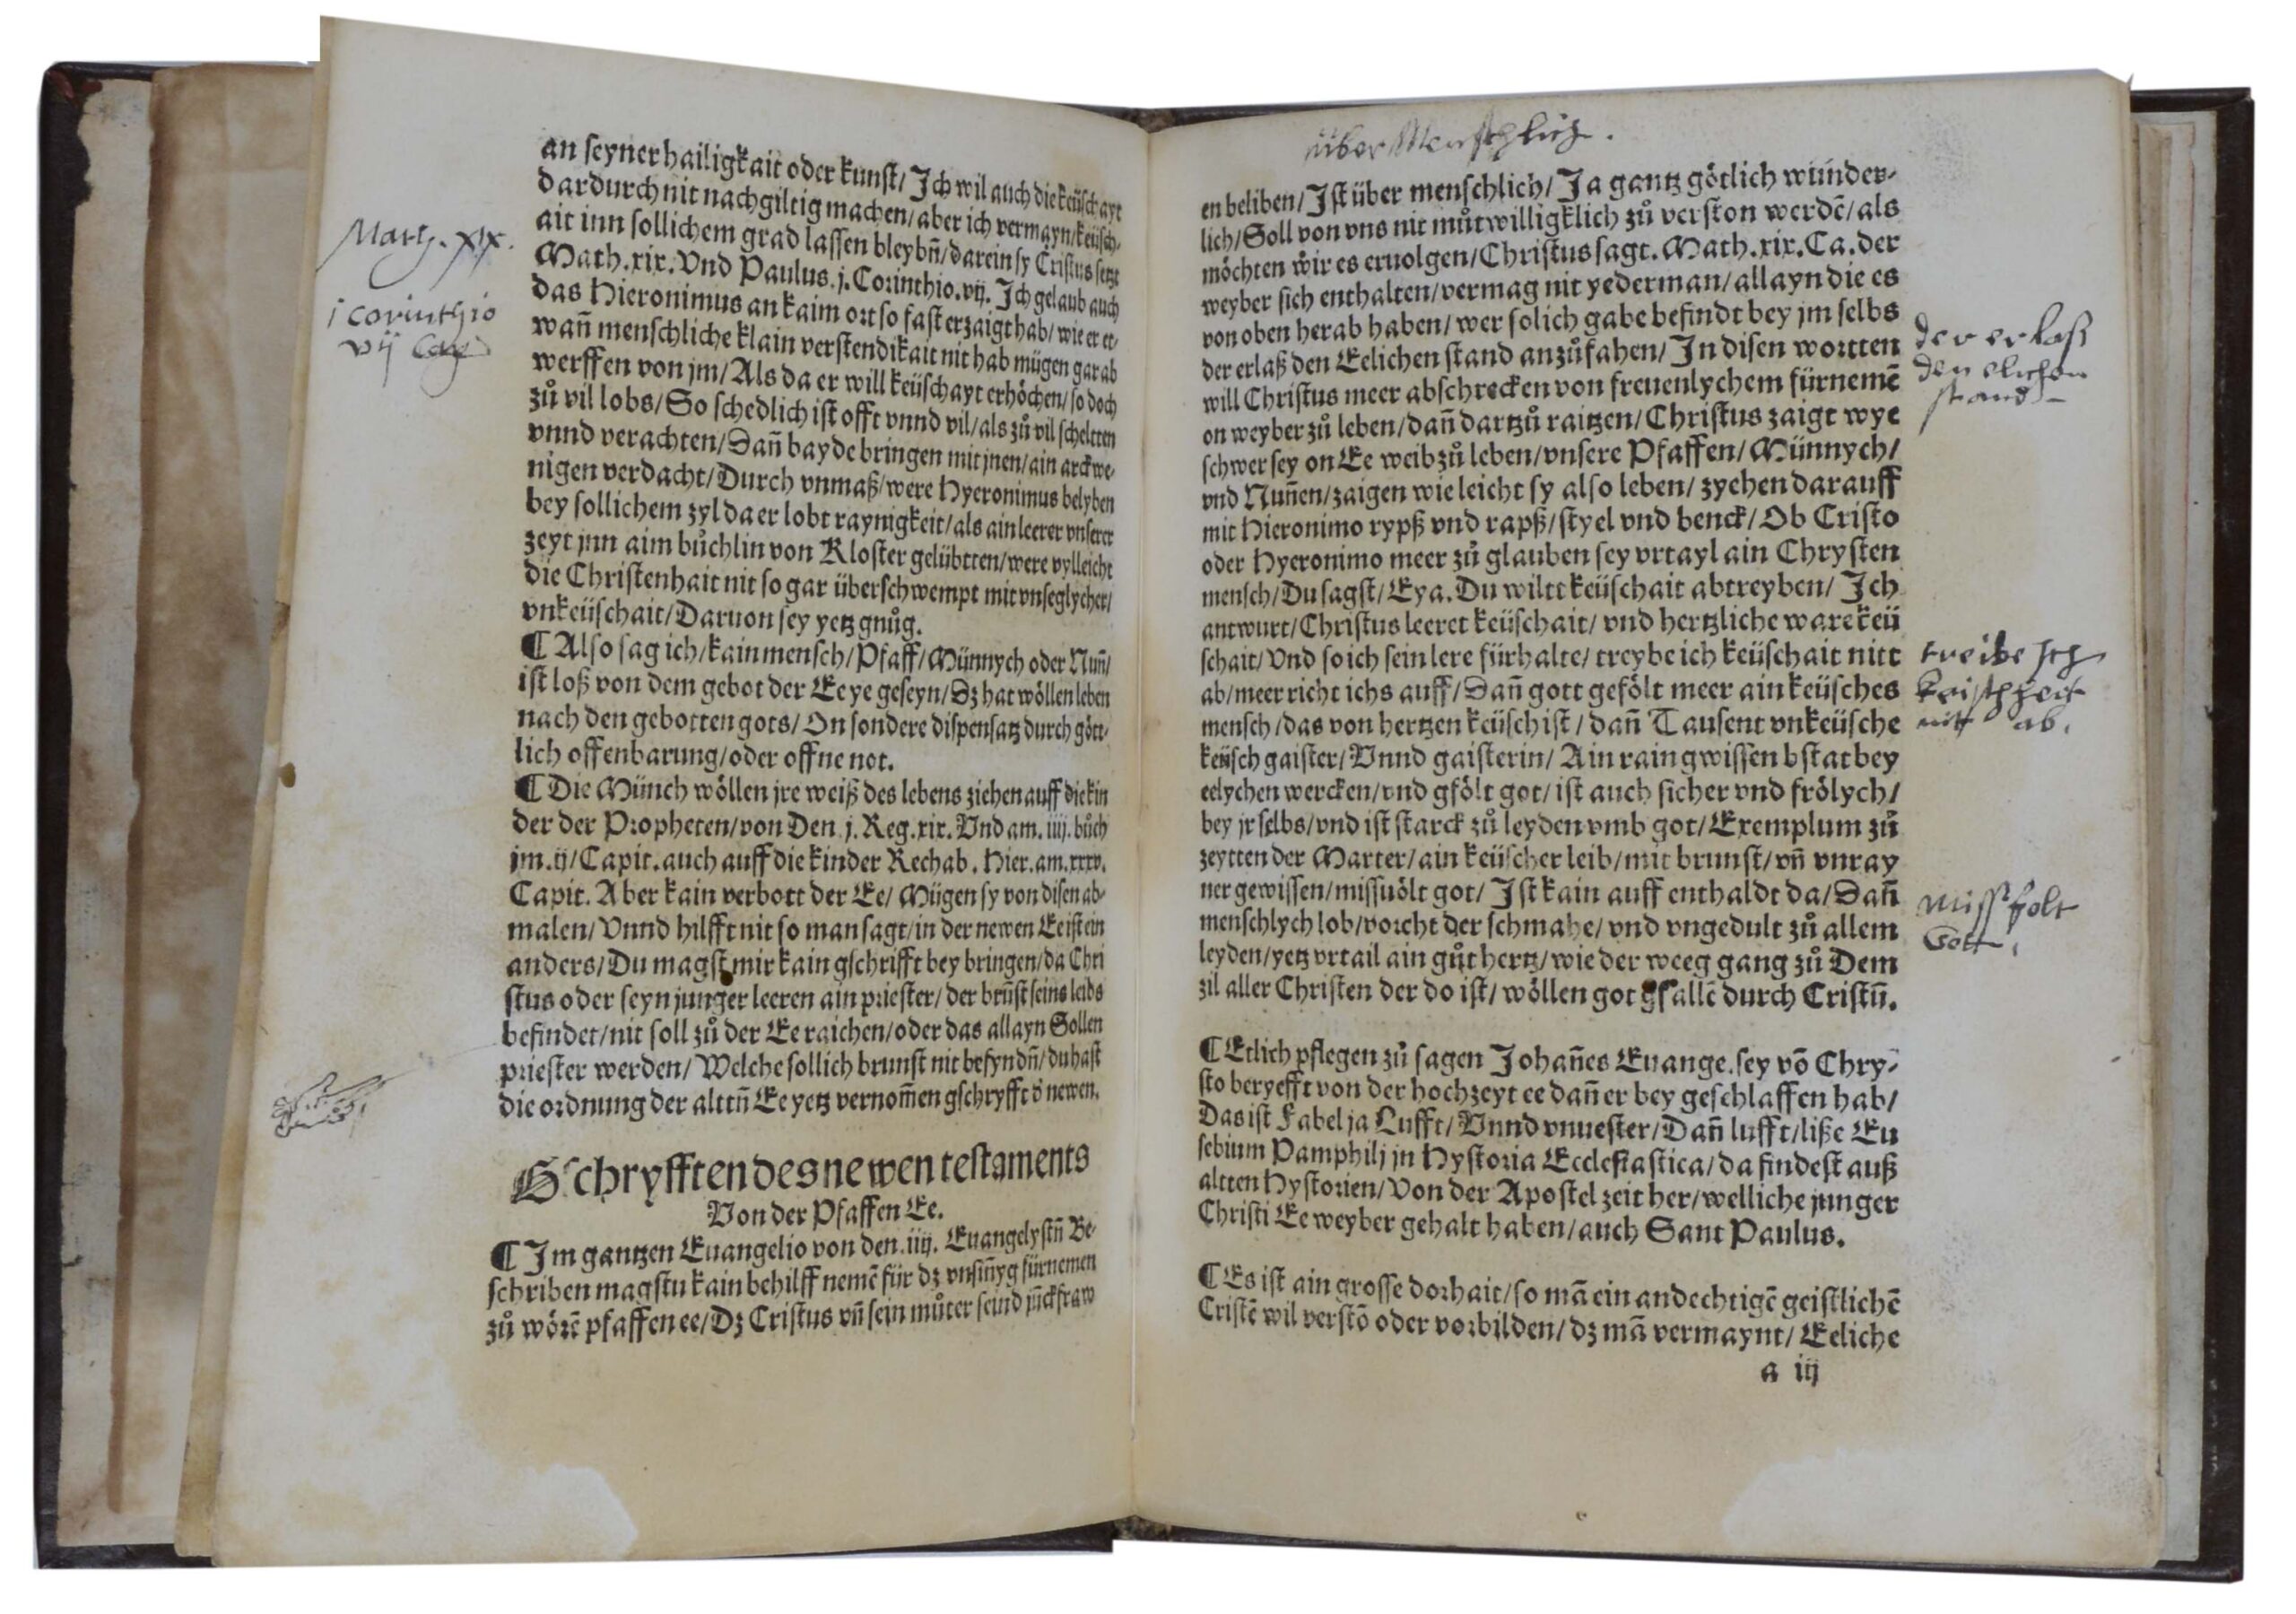 Math. xix.
i corinthio
vij Cap
an ſeyner hailigkait oder kunſt/ Ich wil auch die keüſchayt
dardurch nit nachgiltig machen/ aber ich vermayn/ keüſch-
ait inn ſollichem grad laſſen bleybñ/ darein ſy Criſtus ſetzt
Math.xix. Vnd Paulus.j.Corinthio.vij. Ich gelaub auch
das Hieronimus an kaim ort ſo faſt erzaigt hab/ wie er et-
wañ menſchliche klain verſtendikait nit hab mügen gar ab
werffen von jm/ Als da er will keüſchayt erhöchen/ ſo doch
zů vil lobs/ So ſchedlich iſt offt vnnd vil/ als zů vil ſcheltten
vnnd verachten/ Dañ bayde bringen mit jnen/ ain arckwe-
nigen verdacht/ Durch vnmaß/ were Hyeronimus belyben
bey ſollichem zyl da er lobt raynigkeit/ als ain leerer vnſerer
zeyt jnn aim bůchlin von Kloſter gelübtten/ were vylleicht
die Chriſtenhait nit ſo gar überſchwempt mit vnſeglycher/
vnkeüſchait/ Daruon ſey yetz gnůg.
¶ Alſo ſag ich/ kain menſch/ Pfaff/ Münnych oder Nuñ/
iſt loß von dem gebot der Ee ye geſeyn/ Dz hat wöllen leben
nach den gebotten gots/ On ſondere diſpenſatz durch gött-
lich offenbarung/ oder offne not.
¶ Die Münch wöllen jre weiß des lebens ziehen auff die kin
der der Propheten/ von Den.j.Reg.xix. Vnd am.iiij.bůch
jm.ij/ Capit. auch auff die kinder Rechab. Hier.am.xxxv.
Capit. Aber kain verbott der Ee/ Mügen ſy von diſen ab-
malen/ Vnnd hilfft nit ſo man ſagt/ in der newen Ee iſt ein
anders/ Du magſt mir kain gſchrifft bey bringen/ da Chri
ſtus oder ſeyn junger leeren ain prieſter/ der brũſt ſeins leibs
befindet/ nit ſoll zů der Ee raichen/ oder das allayn Sollen
prieſter werden/ Welche ſollich brunſt nit befyndñ/ du haſt
die ordnung der alttñ Ee yetz vernom̃en gſchryfft ð newen.
Gſchryfften des newen teſtaments
Von der Pfaffen Ee.
¶ Im gantzen Euangelio von den.iiij. Euangelyſtñ Be-
ſchriben magſtu kain behilff nemẽ für dz vnſiñyg fürnemen
zů wörẽ pfaffen ee/ Dz Criſtus vñ ſein můter ſeind jũckfraw
über Menſchlich.
en beliben/ Iſt über menſchlich/ Ja gantz götlich wunder-
lich/ Soll von vns nit můtwilligklich zů verſton werdẽ/ als
möchten wir es eruolgen/ Chriſtus ſagt. Math.xix.Ca. der
weyber ſich enthalten/ vermag nit yederman/ allayn die es
von oben herab haben/ wer ſolich gabe befindt bey jm ſelbs
der erlaß den Eelichen ſtand anzůfahen/ In diſen wortten
will Chriſtus meer abſchrecken von freuenlychem fürnemẽ
on weyber zů leben/ dañ dartzů raitzen/ Chriſtus zaigt wye
ſchwer ſey on Ee weib zů leben/ vnſere Pfaffen/ Münnych/
vnd Nuñen/ zaigen wie leicht ſy alſo leben/ zyehen darauff
mit Hieronimo rypß vnd rapß/ ſtyel vnd benck/ Ob Criſto
oder Hyeronimo meer zů glauben ſey vrtayl ain Chryſten
menſch/ Du ſagſt/ Eya. Du wiltt keüſchait abtreyben/ Ich
antwurt/ Chriſtus leeret keüſchait/ vnd hertzliche ware keü
ſchait/ Vnd ſo ich ſein lere fürhalte/ treybe ich keüſchait nitt
ab/ meer richt ichs auff/ Dañ gott gefölt meer ain keüſches
menſch/ das von hertzen keüſch iſt/ dañ Tauſent vnkeüſche
keüſch gaiſter/ Vnnd gaiſterin/ Ain rain gwiſſen bſtat bey
eelychen wercken/ vnd gfölt got/ iſt auch ſicher vnd frölych/
bey jr ſelbs/ vnd iſt ſtarck zů leyden vmb got/ Exemplum zů
zeytten der Marter/ ain keüſcher leib/ mit brunſt/ vñ vnray
ner gewiſſen/ miſſuölt got/ Iſt kain auff enthaldt da/ Dañ
menſchlych lob/ vorcht der ſchmahe/ vnd vngedult zů allem
leyden/ yetz vrtail ain gůt hertz/ wie der weeg gang zů Dem
zil aller Chriſten der do iſt/ wöllen got gfallẽ durch Criſtũ.
¶ Etlich pflegen zů ſagen Johañes Euange.ſey võ Chry-
ſto beryefft von der hochzeyt ee dañ er bey geſchlaffen hab/
Das iſt Fabel ja Lufft/ Vnnd vnueſter/ Dañ lufft/ liße Eu
ſebium Pamphilj jn Hyſtoria Eccleſiaſtica/ da findeſt auß
altten Hyſtorien/ Von der Apoſtel zeit her/ welliche junger
Chriſti Ee weyber gehalt haben/ auch Sant Paulus.
¶ Es iſt ain groſſe dorhait/ ſo mã ein andechtigẽ geiſtlichẽ
Criſtẽ wil verſtõ oder vorbilden/ dz mã vermaynt/ Eeliche
a iij
der erlaß
den elichen
ſtand
treibe Ich
keiſchheit
nit ab.
miſſfolt
Gott.